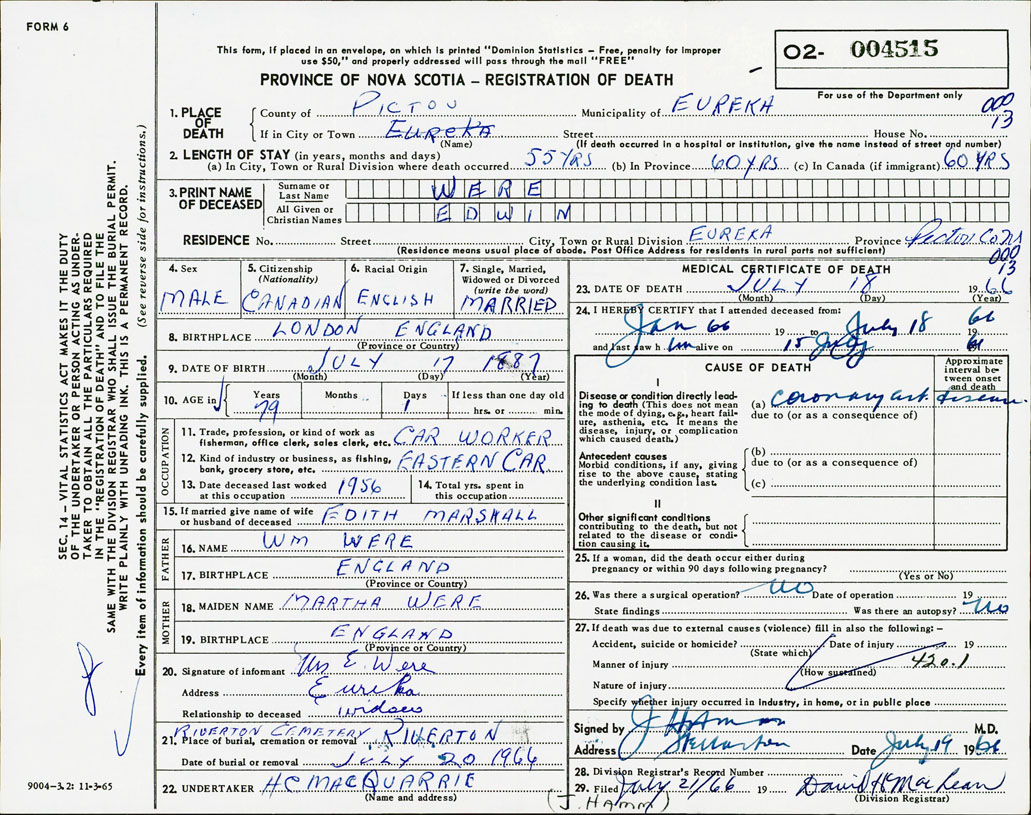 FORM 6
This form, if placed in an envelope, on which is printed "Dominion Statistics – Free, penalty for improper
use $50," and properly addressed will pass through the mail "FREE"
O2- 004515
PROVINCE OF NOVA SCOTIA – REGISTRATION OF DEATH
For use of the Department only
1. PLACE OF DEATH
County of PICTOU Municipality of EUREKA 000
If in City or Town EUREKA Street House No. 13
(Name) (If death occurred in a hospital or institution, give the name instead of street and number)
2. LENGTH OF STAY (in years, months and days)
(a) In City, Town or Rural Division where death occurred 55 YRS (b) In Province 60 YRS (c) In Canada (if immigrant) 60 YRS
3. PRINT NAME OF DECEASED
Surname or Last Name WERE
All Given or Christian Names EDWIN
RESIDENCE No. Street City, Town or Rural Division EUREKA Province Pictou Co NS
(Residence means usual place of abode. Post Office Address for residents in rural parts not sufficient) 000
13
4. Sex
MALE
5. Citizenship
(Nationality)
CANADIAN
6. Racial Origin
ENGLISH
7. Single, Married,
Widowed or Divorced
(write the word)
MARRIED
8. BIRTHPLACE LONDON ENGLAND
(Province or Country)
9. DATE OF BIRTH JULY 17 1887
(Month) (Day) (Year)
10. AGE in
Years Months Days If less than one day old
79 1 hrs. or min.
OCCUPATION
11. Trade, profession, or kind of work as
fisherman, office clerk, sales clerk, etc. CAR WORKER
12. Kind of industry or business, as fishing,
bank, grocery store, etc. EASTERN CAR
13. Date deceased last worked
at this occupation 1956
14. Total yrs. spent in
this occupation
15. If married give name of wife
or husband of deceased EDITH MARSHALL
FATHER
16. NAME WM WERE
17. BIRTHPLACE ENGLAND
(Province or Country)
MOTHER
18. MAIDEN NAME MARTHA WERE
19. BIRTHPLACE ENGLAND
(Province or Country)
20. Signature of informant Mrs E. Were
Address Eureka
Relationship to deceased widow
RIVERTON CEMETERY
21. Place of burial, cremation or removal RIVERTON
Date of burial or removal JULY 20 1966
22. UNDERTAKER HC MACQUARRIE
(Name and address)
MEDICAL CERTIFICATE OF DEATH
23. DATE OF DEATH JULY 18 1966
(Month) (Day) (Year)
24. I HEREBY CERTIFY that I attended deceased from:
Jan 66 19 to July 18 19 66
and last saw h im alive on 15 July 19
CAUSE OF DEATH
Approximate
interval be-
tween onset
and death
I
Disease or condition directly lead-
ing to death (This does not mean
the mode of dying, e.g., heart fail-
ure, asthenia, etc. It means the
disease, injury, or complication
which caused death.)
(a) coronary art. disease.
due to (or as a consequence of)
Antecedent causes
Morbid conditions, if any, giving
rise to the above cause, stating
the underlying condition last.
(b)
due to (or as a consequence of)
(c)
II
Other significant conditions
contributing to the death, but not
related to the disease or condi-
tion causing it.
25. If a woman, did the death occur either during
pregnancy or within 90 days following pregnancy?
(Yes or No)
26. Was there a surgical operation? No Date of operation 19
State findings Was there an autopsy? No
27. If death was due to external causes (violence) fill in also the following: –
Accident, suicide or homicide? Date of injury 19
(State which)
Manner of injury 420.1
(How sustained)
Nature of injury
Specify whether injury occurred in industry, in home, or in public place
Signed by J Hamm M.D.
Address Stellarton Date July 19 1966
28. Division Registrar's Record Number
29. Filed July 21/66 19 David H MacLean
(Division Registrar)
(J. HAMM)
SEC. 14 – VITAL STATISTICS ACT MAKES IT THE DUTY
OF THE UNDERTAKER OR PERSON ACTING AS UNDER-
TAKER TO OBTAIN ALL THE PARTICULARS REQUIRED
IN THE "REGISTRATION OF DEATH" AND TO FILE THE
SAME WITH THE DIVISION REGISTRAR WHO SHALL ISSUE THE BURIAL PERMIT.
WRITE PLAINLY WITH UNFADING INK. THIS IS A PERMANENT RECORD.
Every item of information should be carefully supplied. (See reverse side for instructions.)
9004-3.2: 11-3-65